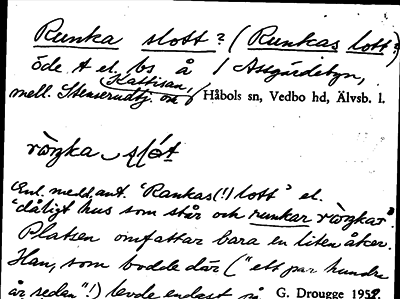 Runka slott? (Runkas lott?)
öde t el. bs å / Assgärdebyn,
Kattisan,
mell. Stenserudtj. och / Håbols sn, Vedbo hd, Älvsb. l.
slo̅t
Enl. medd. ant. "Rankas(!) lott" el.
"dåligt hus som står och runkar
Platsen omfattar bara en liten åker.
Han, som bodde där ("ett par hundra
år sedan"!) levde endast på G. Drougge 1952.